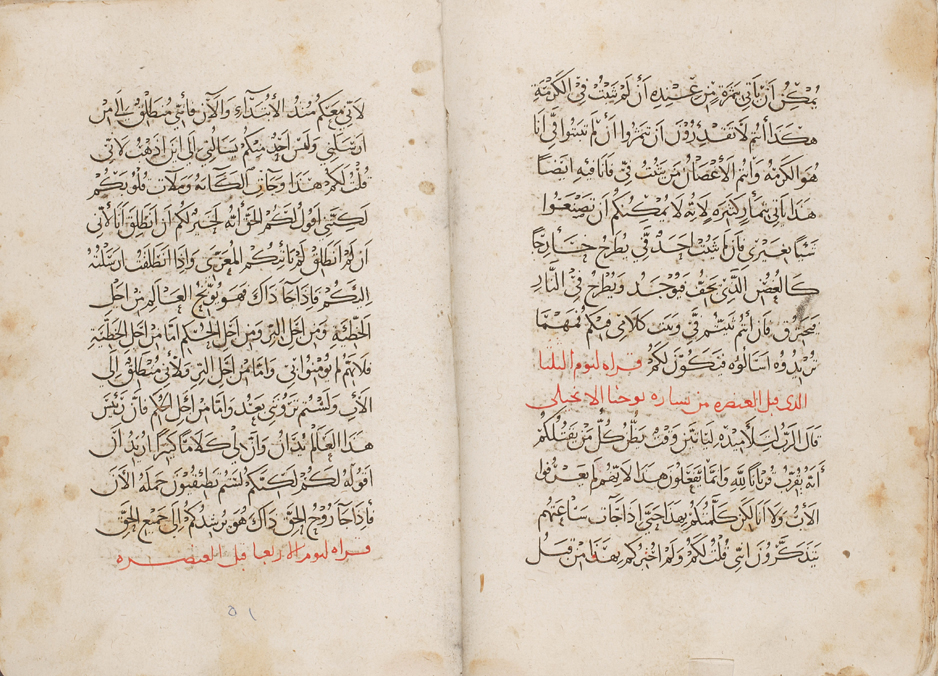 يمكن ان ياتي بثمرة من عنده ان لم تثبت في الكرمة
هكذا انتم لا تقدرون ان تثمروا ان لم تثبتوا فيّ انا
هو الكرمة وانتم الاغصان من يثبت فيّ فانا فيه ايضًا
هذا ياتي بثمار كثيرة لانه لا يمكنكم ان تصنعوا
شيًا بغيري فان لم يثبت احد فيّ يطرح خارجًا
كالغصن الذي يجف فيوخذ ويطرح في النار
فيحترق فان انتم ثبتم فيّ وثبت كلامي فيكم فمهما
تريدوه اسالوه فيكون لكم قراه ليوم الثلثا
الذي قبل العنصره من بشاره يوحنا الانجيلي
قال الرب لتلاميذه لياتين وقت يظن كل من يقتلكم
أنه يقرب قربانًا لله وانما يفعلون هذا لانهم لم يعرفوا
الاب ولا انا لكن كلمتكم بهذا حتى اذا حانت ساعتهم
تتذكرون اني قلت لكم ولم اخبركم بهذا من قبل
لاني معكم منذ الابتداء والآن فأني منطلق الى من
ارسلني وليس احد منكم يسالني الى اين اذهب لاني
قلت لكم هذا وحانت الكآبة وملات قلوبكم
لكنني اقول لكم الحق أنه لخير لكم ان انطلق انا لأني
ان لم انطلق لم ياتيكم المعزي واذا انطلقت ارسلته
اليكم فاذا جا ذاك فهو يوبخ العالم من اجل
الخطية ومن اجل البر ومن اجل الحكم اما من اجل الخطية
فلانهم لم يومنوا بي واما من اجل البر ولأني منطلق الى
الأب ولستم تروني بعد واما من اجل الحكم فان رئيس
هذا العالم يدان وان لي كلامًا كثيرًا اريد ان
اقوله لكم لكنكم لستم تطيقون حمله الآن
فاذا جا روح الحق ذاك وهو يرشدكم الى جميع الحق
قراه ليوم الاربعا قبل العنصره